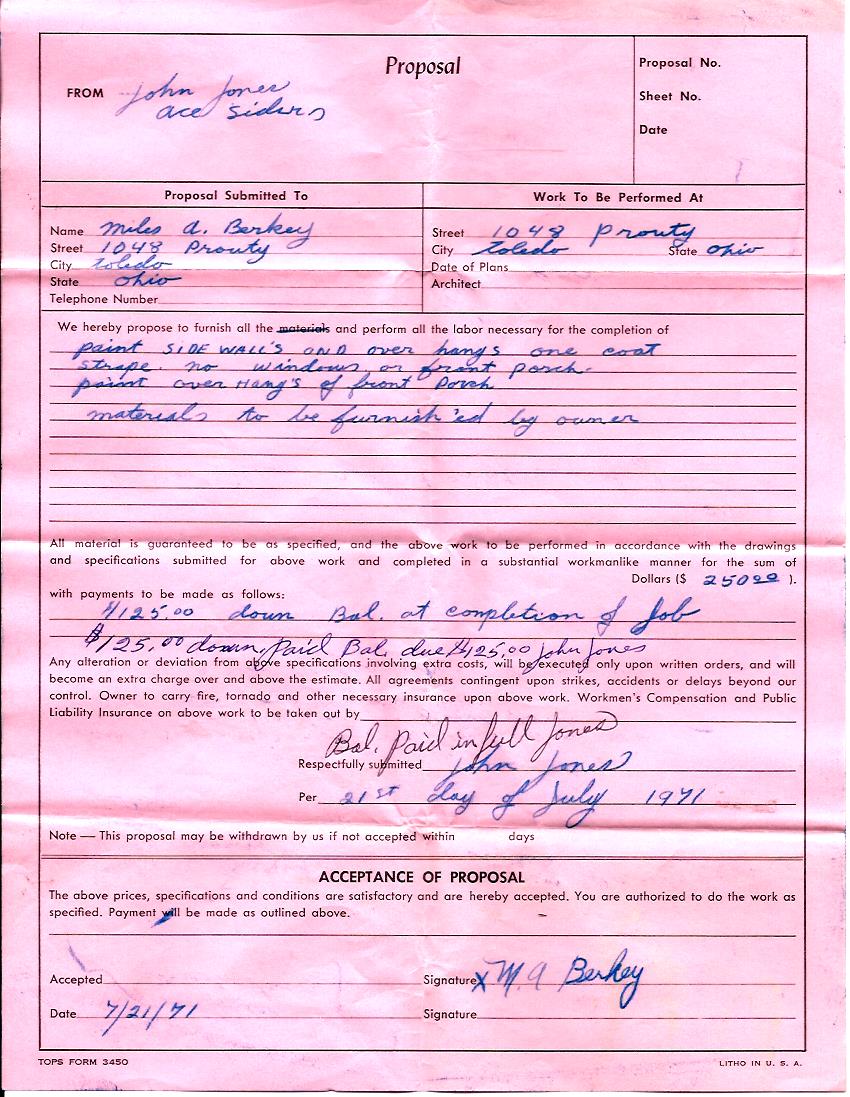 Proposal
Proposal No.
FROM John Jones
Sheet No.
ace Siders
Date
Proposal Submitted To
Work To Be Performed At
Name Miles A. Berkey
Street 1048 Prouty
City Toledo
State Ohio
Telephone Number
Street 1048 Prouty
City Toledo State Ohio
Date of Plans
Architect
We hereby propose to furnish all the materials and perform all the labor necessary for the completion of
paint SIDE WALL'S AND over hangs one coat
strape. no windows or front porch.
paint over HANG'S of front Porch
materials to be furnish'ed by owner
All material is guaranteed to be as specified, and the above work to be performed in accordance with the drawings
and specifications submitted for above work and completed in a substantial workmanlike manner for the sum of
Dollars ($ 250.00 ).
with payments to be made as follows:
$125.00 down Bal. at completion of Job
$125.00 down, Paid Bal. due $125.00 John Jones
Any alteration or deviation from above specifications involving extra costs, will be executed only upon written orders, and will
become an extra charge over and above the estimate. All agreements contingent upon strikes, accidents or delays beyond our
control. Owner to carry fire, tornado and other necessary insurance upon above work. Workmen's Compensation and Public
Liability Insurance on above work to be taken out by
Bal. Paid in full Jones
Respectfully submitted John Jones
Per 21st day of July 1971
Note — This proposal may be withdrawn by us if not accepted within days
ACCEPTANCE OF PROPOSAL
The above prices, specifications and conditions are satisfactory and are hereby accepted. You are authorized to do the work as
specified. Payment will be made as outlined above.
Accepted
Signature X M. A Berkey
Date 7/21/71
Signature
TOPS FORM 3450
LITHO IN U. S. A.